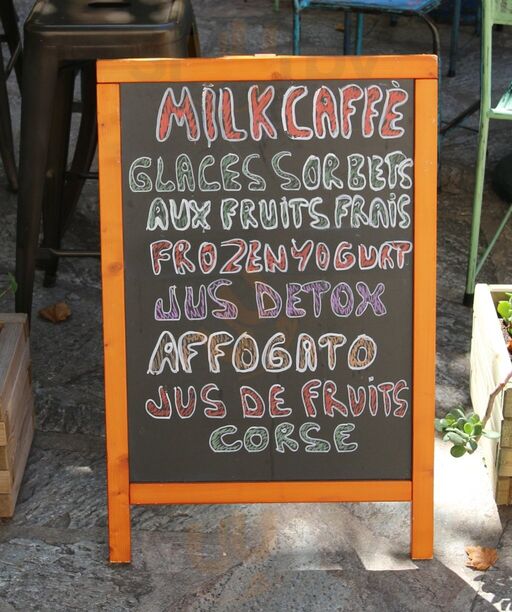 MILKCAFFÈ
GLACES SORBETS
AUX FRUITS FRAIS
FROZEN YOGURT
JUS DETOX
AFFOGATO
JUS DE FRUITS
CORSE